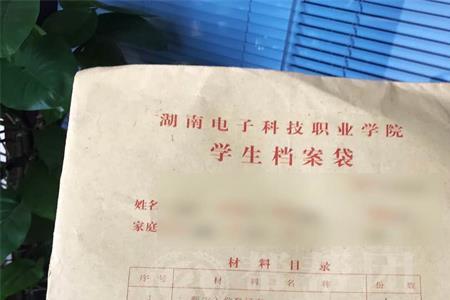 湖南电子科技职业学院
学生档案袋
姓名
家庭
材料目录
序号 材料名称 份数